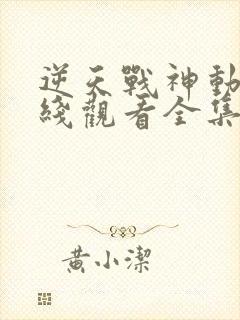 逆天戰神動
綫觀看全集
黃小潔